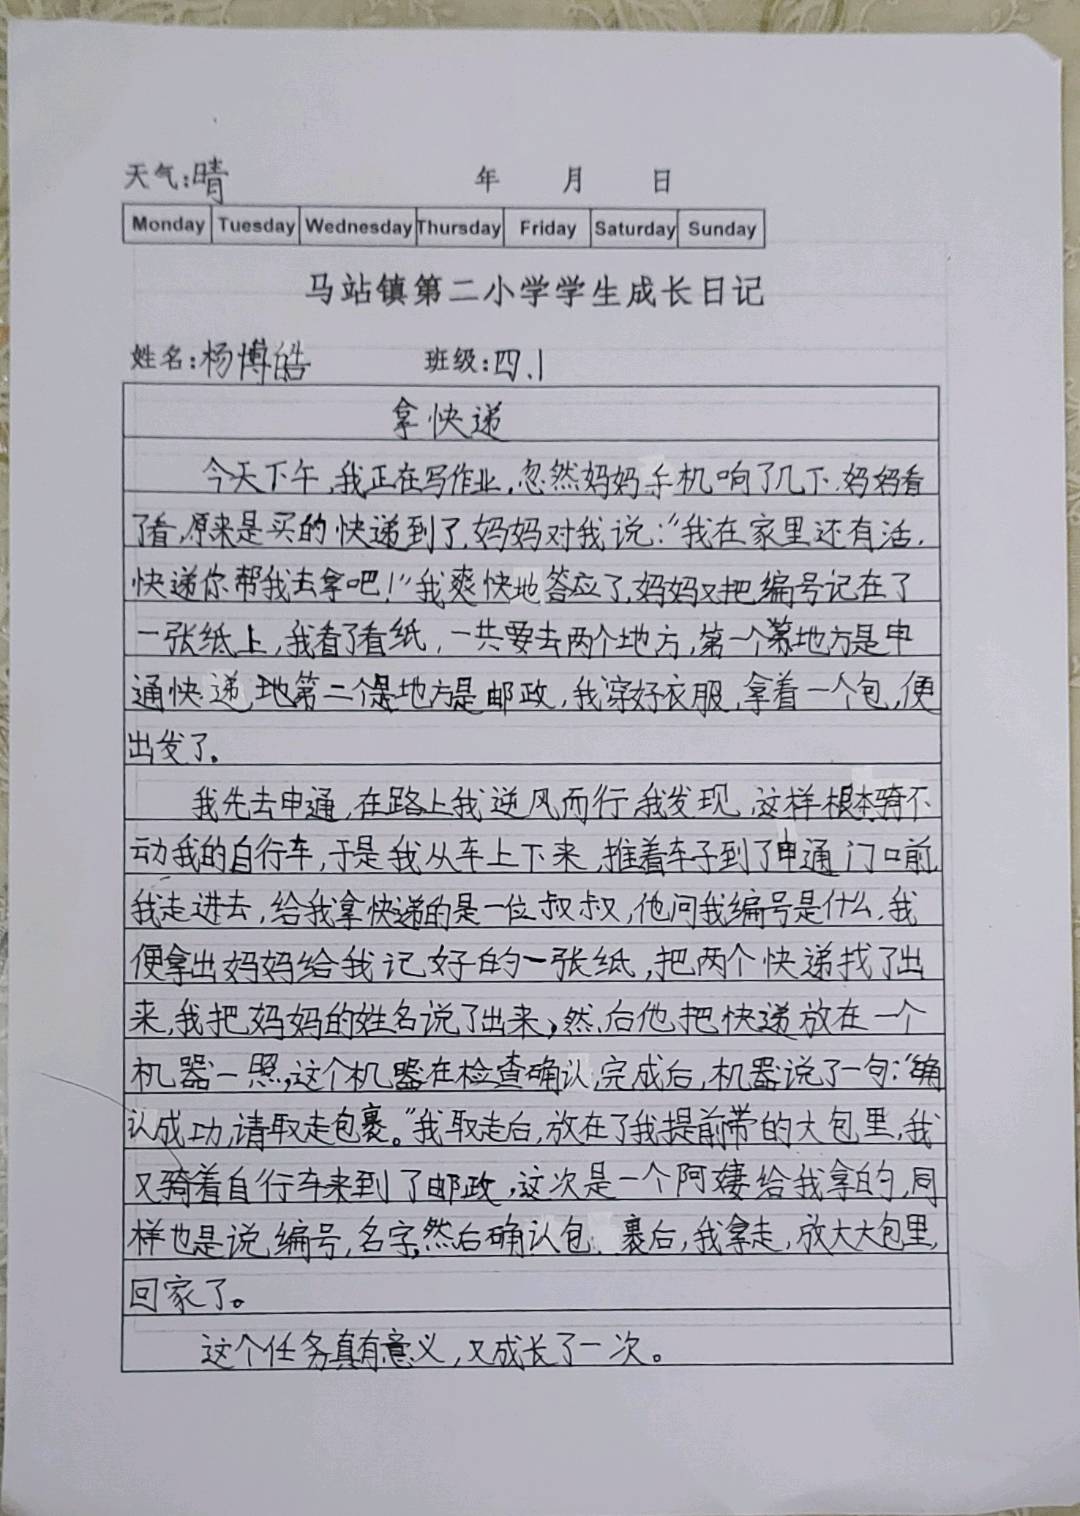 天气:晴 年 月 日
Monday Tuesday Wednesday Thursday Friday Saturday Sunday
马站镇第二小学学生成长日记
姓名:杨博皓 班级:四.1
拿快递
今天下午,我正在写作业,忽然妈妈手机响了几下,妈妈看
了看,原来是买的快递到了,妈妈对我说:“我在家里还有活,
快递你帮我去拿吧!”我爽快地答应了,妈妈又把编号记在了
一张纸上,我看了看纸,一共要去两个地方,第一个地方是申
通快递,地第二个是地方是邮政,我穿好衣服,拿着一个包,便
出发了。
我先去申通,在路上我逆风而行,我发现,这样根本骑不
动我的自行车,于是我从车上下来,推着车子到了申通门口前,
我走进去,给我拿快递的是一位叔叔,他问我编号是什么,我
便拿出妈妈给我记好的一张纸,把两个快递找了出
来,我把妈妈的姓名说了出来,然后他把快递放在一个
机器一照,这个机器在检查确认,完成后,机器说了一句:“确
认成功,请取走包裹。”我取走后,放在了我提前带的大包里,我
又骑着自行车来到了邮政,这次是一个阿姨给我拿的,同
样也是说编号,名字,然后确认包裹后,我拿走,放大大包里,
回家了。
这个任务真有意义,又成长了一次。